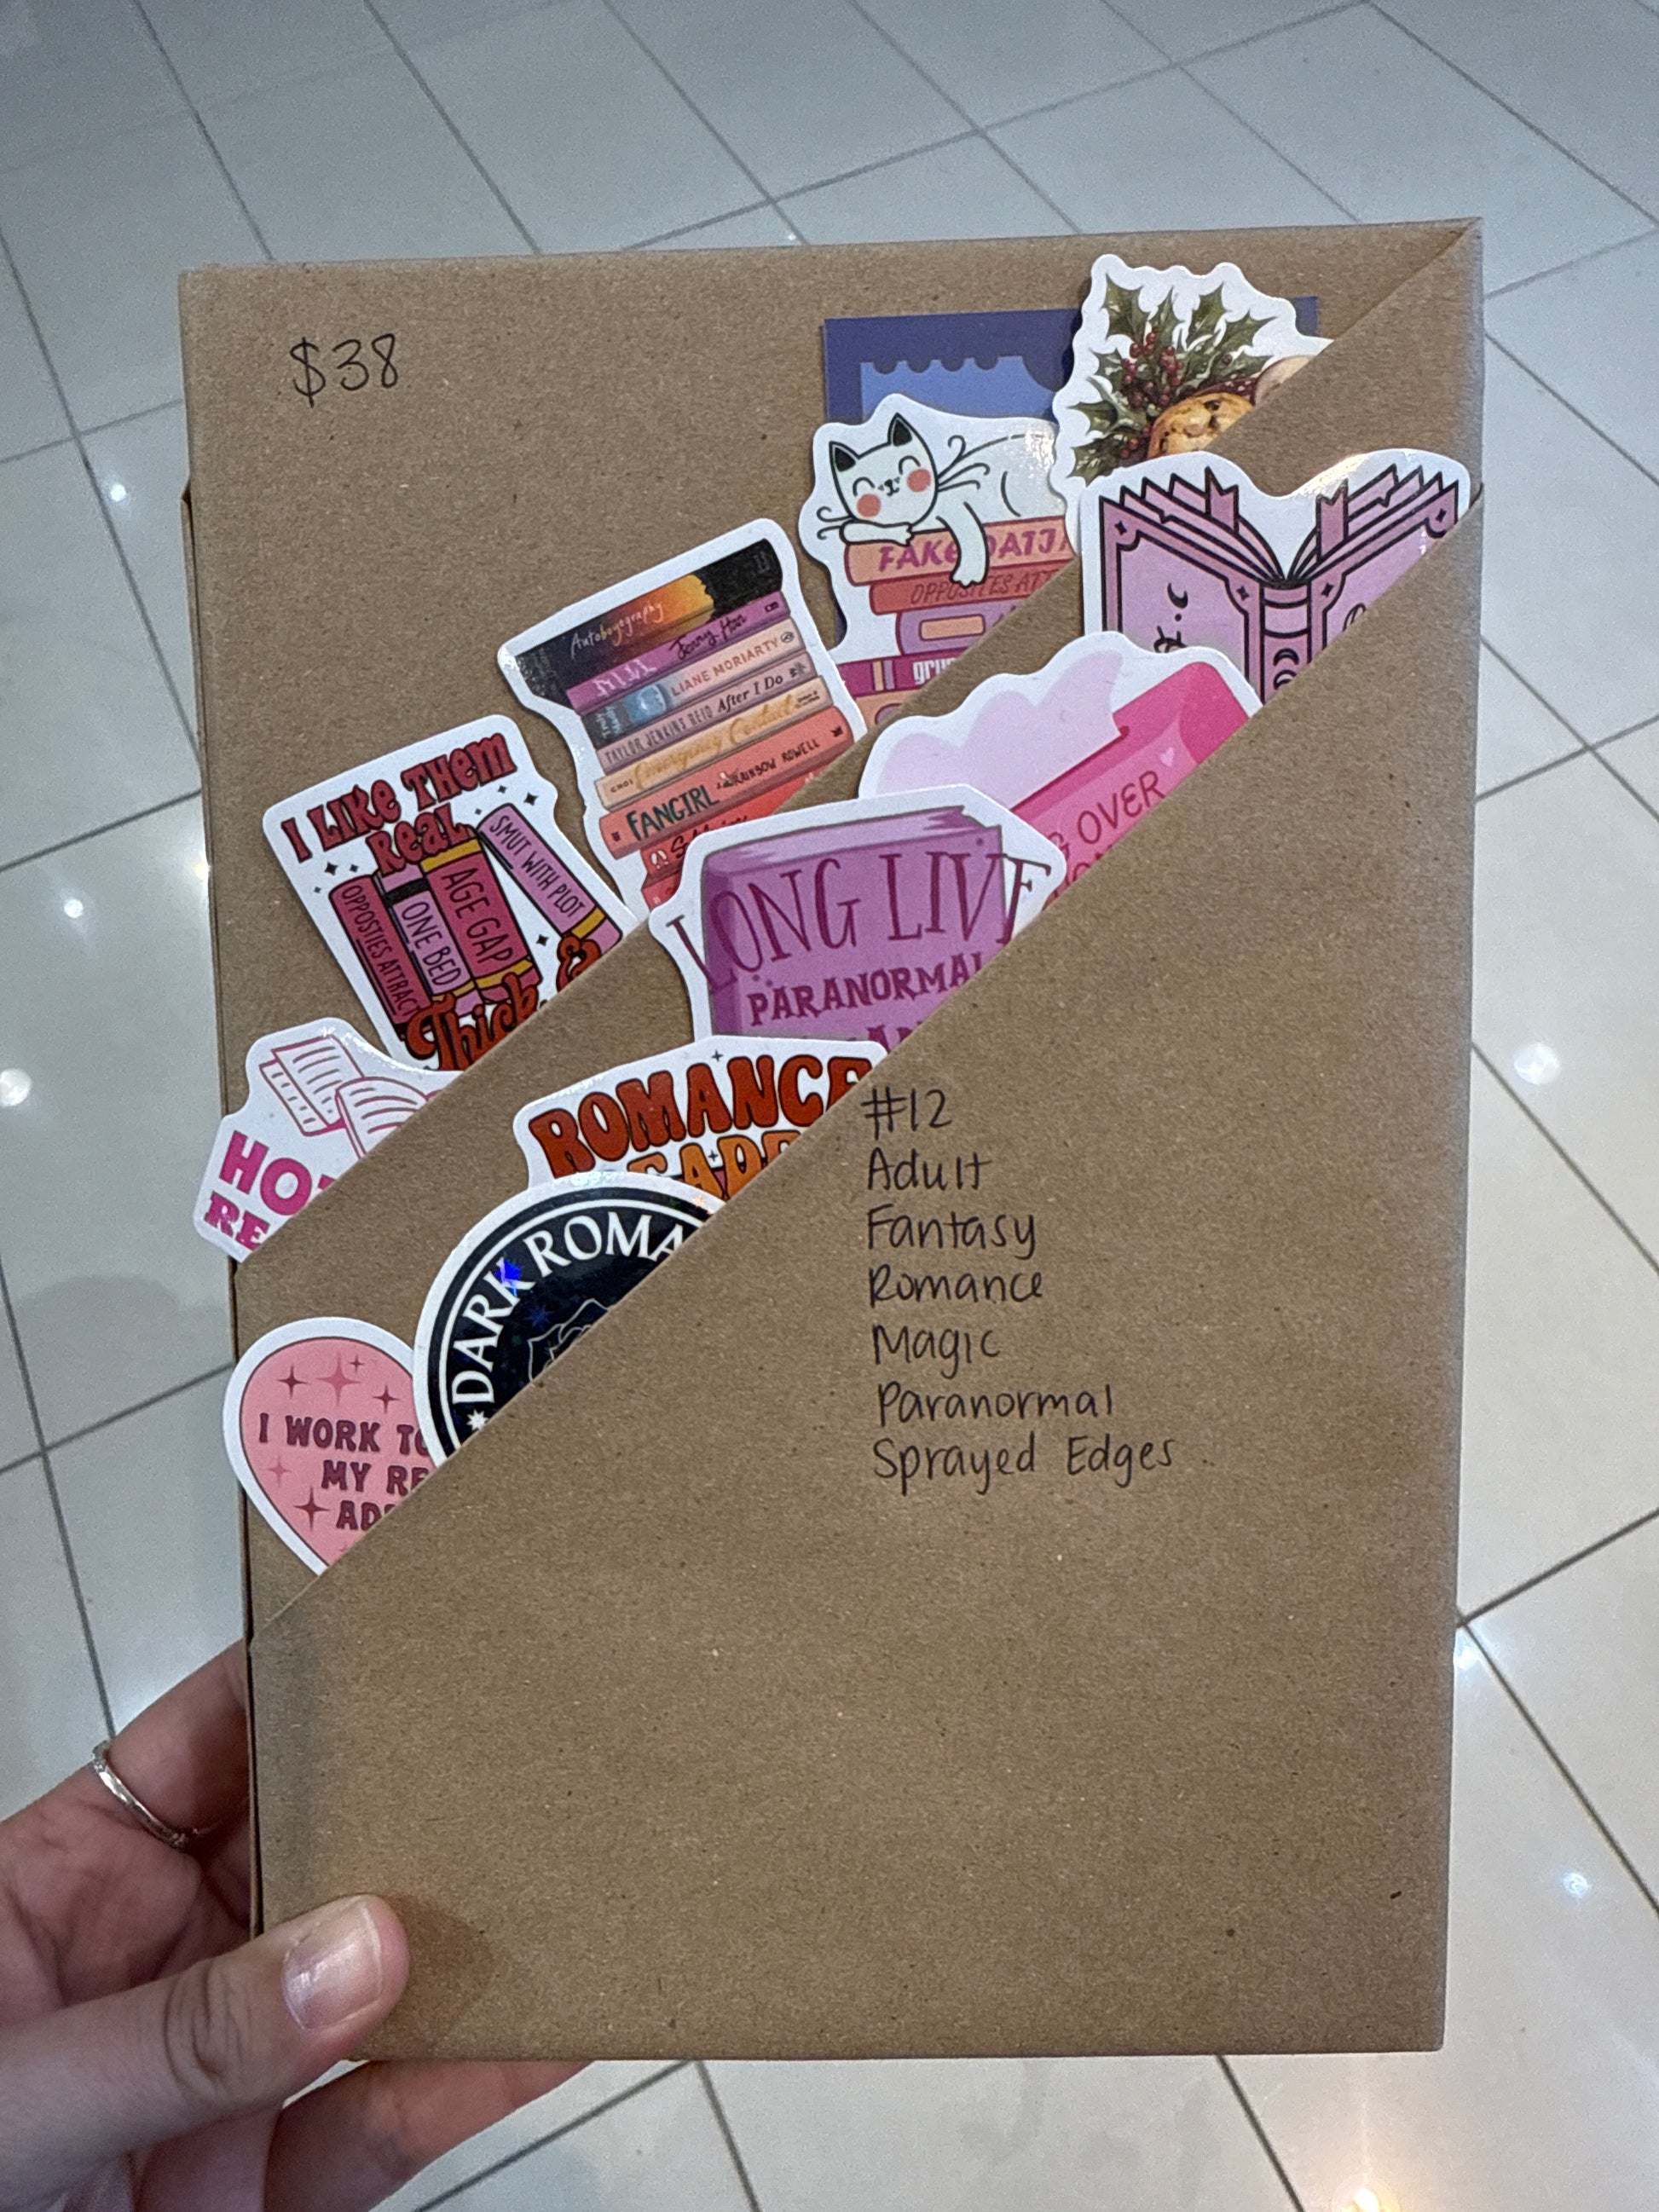 $38
FAKE DATI
OPPOSITES ATT
Autoboyography
Jenny Han
LIANE MORIARTY
TAYLOR JENKINS REID After I Do
CHOI Emergency Contact
FANGIRL RAINBOW ROWELL
I LIKE THEM
REAL
SMUT WITH PLOT
OPPOSTIES ATTRAC
ONE BED
AGE GAP
Thick &
OVER
LONG LIVE
PARANORMAL
HO
RE
ROMANCE
READE
DARK ROMA
I WORK TO
MY RE
AD
#12
Adult
Fantasy
Romance
Magic
Paranormal
Sprayed Edges